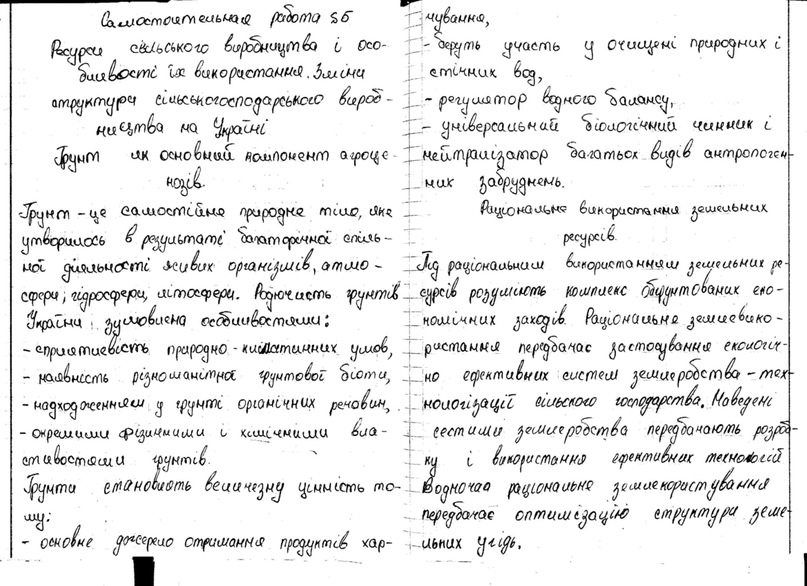 Самостоятельная работа §5
Ресурси сільського виробництва і осо-
бливості їх використання. Зміни
структури сільськогосподарського вироб-
ництва на Україні
Ґрунт як основний компонент агроце-
нозів.
Ґрунт - це самостійне природне тіло, яке
утворилось в результаті багаторічної спіль-
ної діяльності живих організмів, атмо-
сфери, гідросфери, літосфери. Родючість ґрунтів
України зумовлена особливостями:
- сприятливість природно-кліматичних умов,
- наявність різноманітної ґрунтової біоти,
- надходженням у ґрунті органічних речовин,
- окремими фізичними і хімічними вла-
стивостями ґрунтів.
Ґрунти становлять величезну цінність то-
му:
- основне джерело отримання продуктів хар-
чування,
- беруть участь у очищені природних і
стічних вод,
- регулятор водного балансу,
- універсальний біологічний чинник і
нейтралізатор багатьох видів антропоген-
них забруднень.
Раціональне використання земельних
ресурсів.
Під раціональним використанням земельних ре-
сурсів розуміють комплекс обґрунтованих еко-
номічних заходів. Раціональне землевико-
ристання передбачає застосування екологіч-
но ефективних систем землеробства - тех-
нологізації сільского господарства. Наведені
сестими землеробства передбачають розроб-
ку і використання ефективних технологій
Водночас раціональне землекористування
передбачає оптимізацію структури земе-
льних угідь.